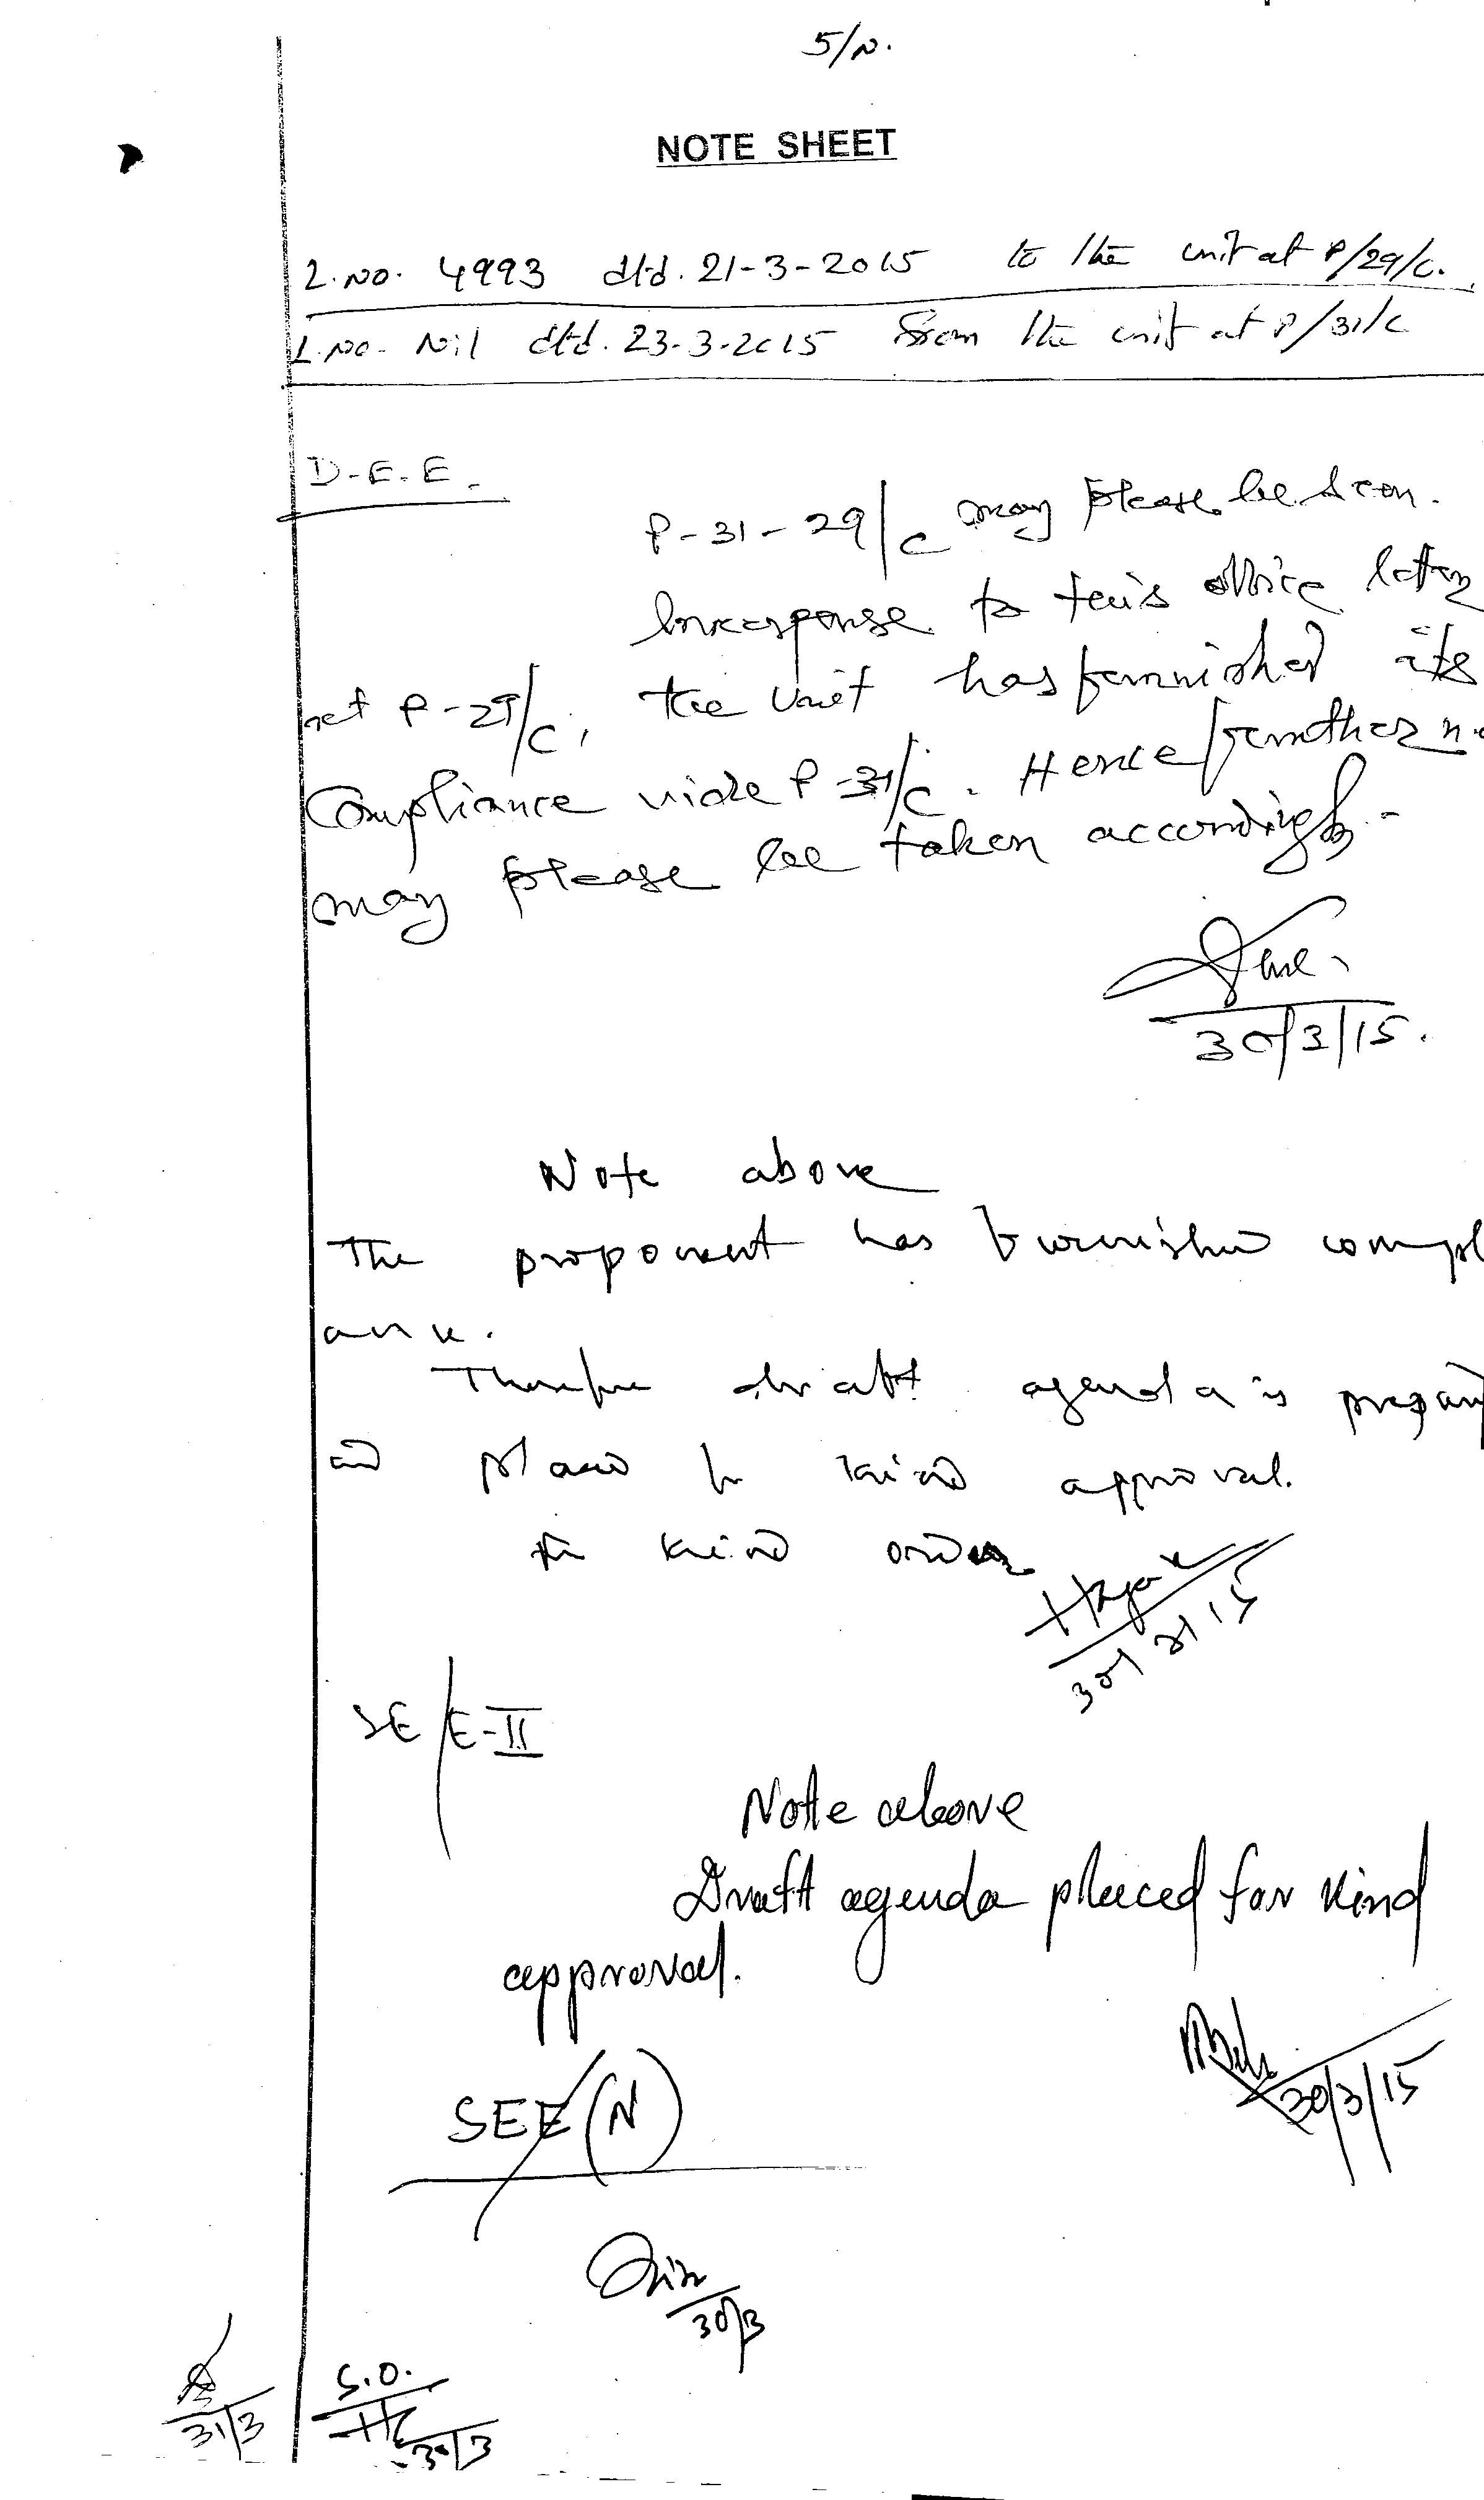 5/N.
NOTE SHEET
L.No. 4993 dtd. 21-3-2015 to the unit at P/29/C.
L.No. Nil dtd. 23-3-2015 from the unit at P/31/C
D.E.E.
P-31-29/C may please be seen.
In response to this office letter
at P-29/C, the unit has furnished its
Compliance vide P-31/C. Hence further
may please be taken accordingly.
30/3/15.
Note above
The proponent has furnished compl
ance.
Therefore draft agenda is prepar
and placed for kind approval.
for kind orders
30/3/15
SE/E-II
Note above
Draft agenda placed for kind
approval.
30/3/15
SEE(N)
30/3
S.O.
31/3
30/3